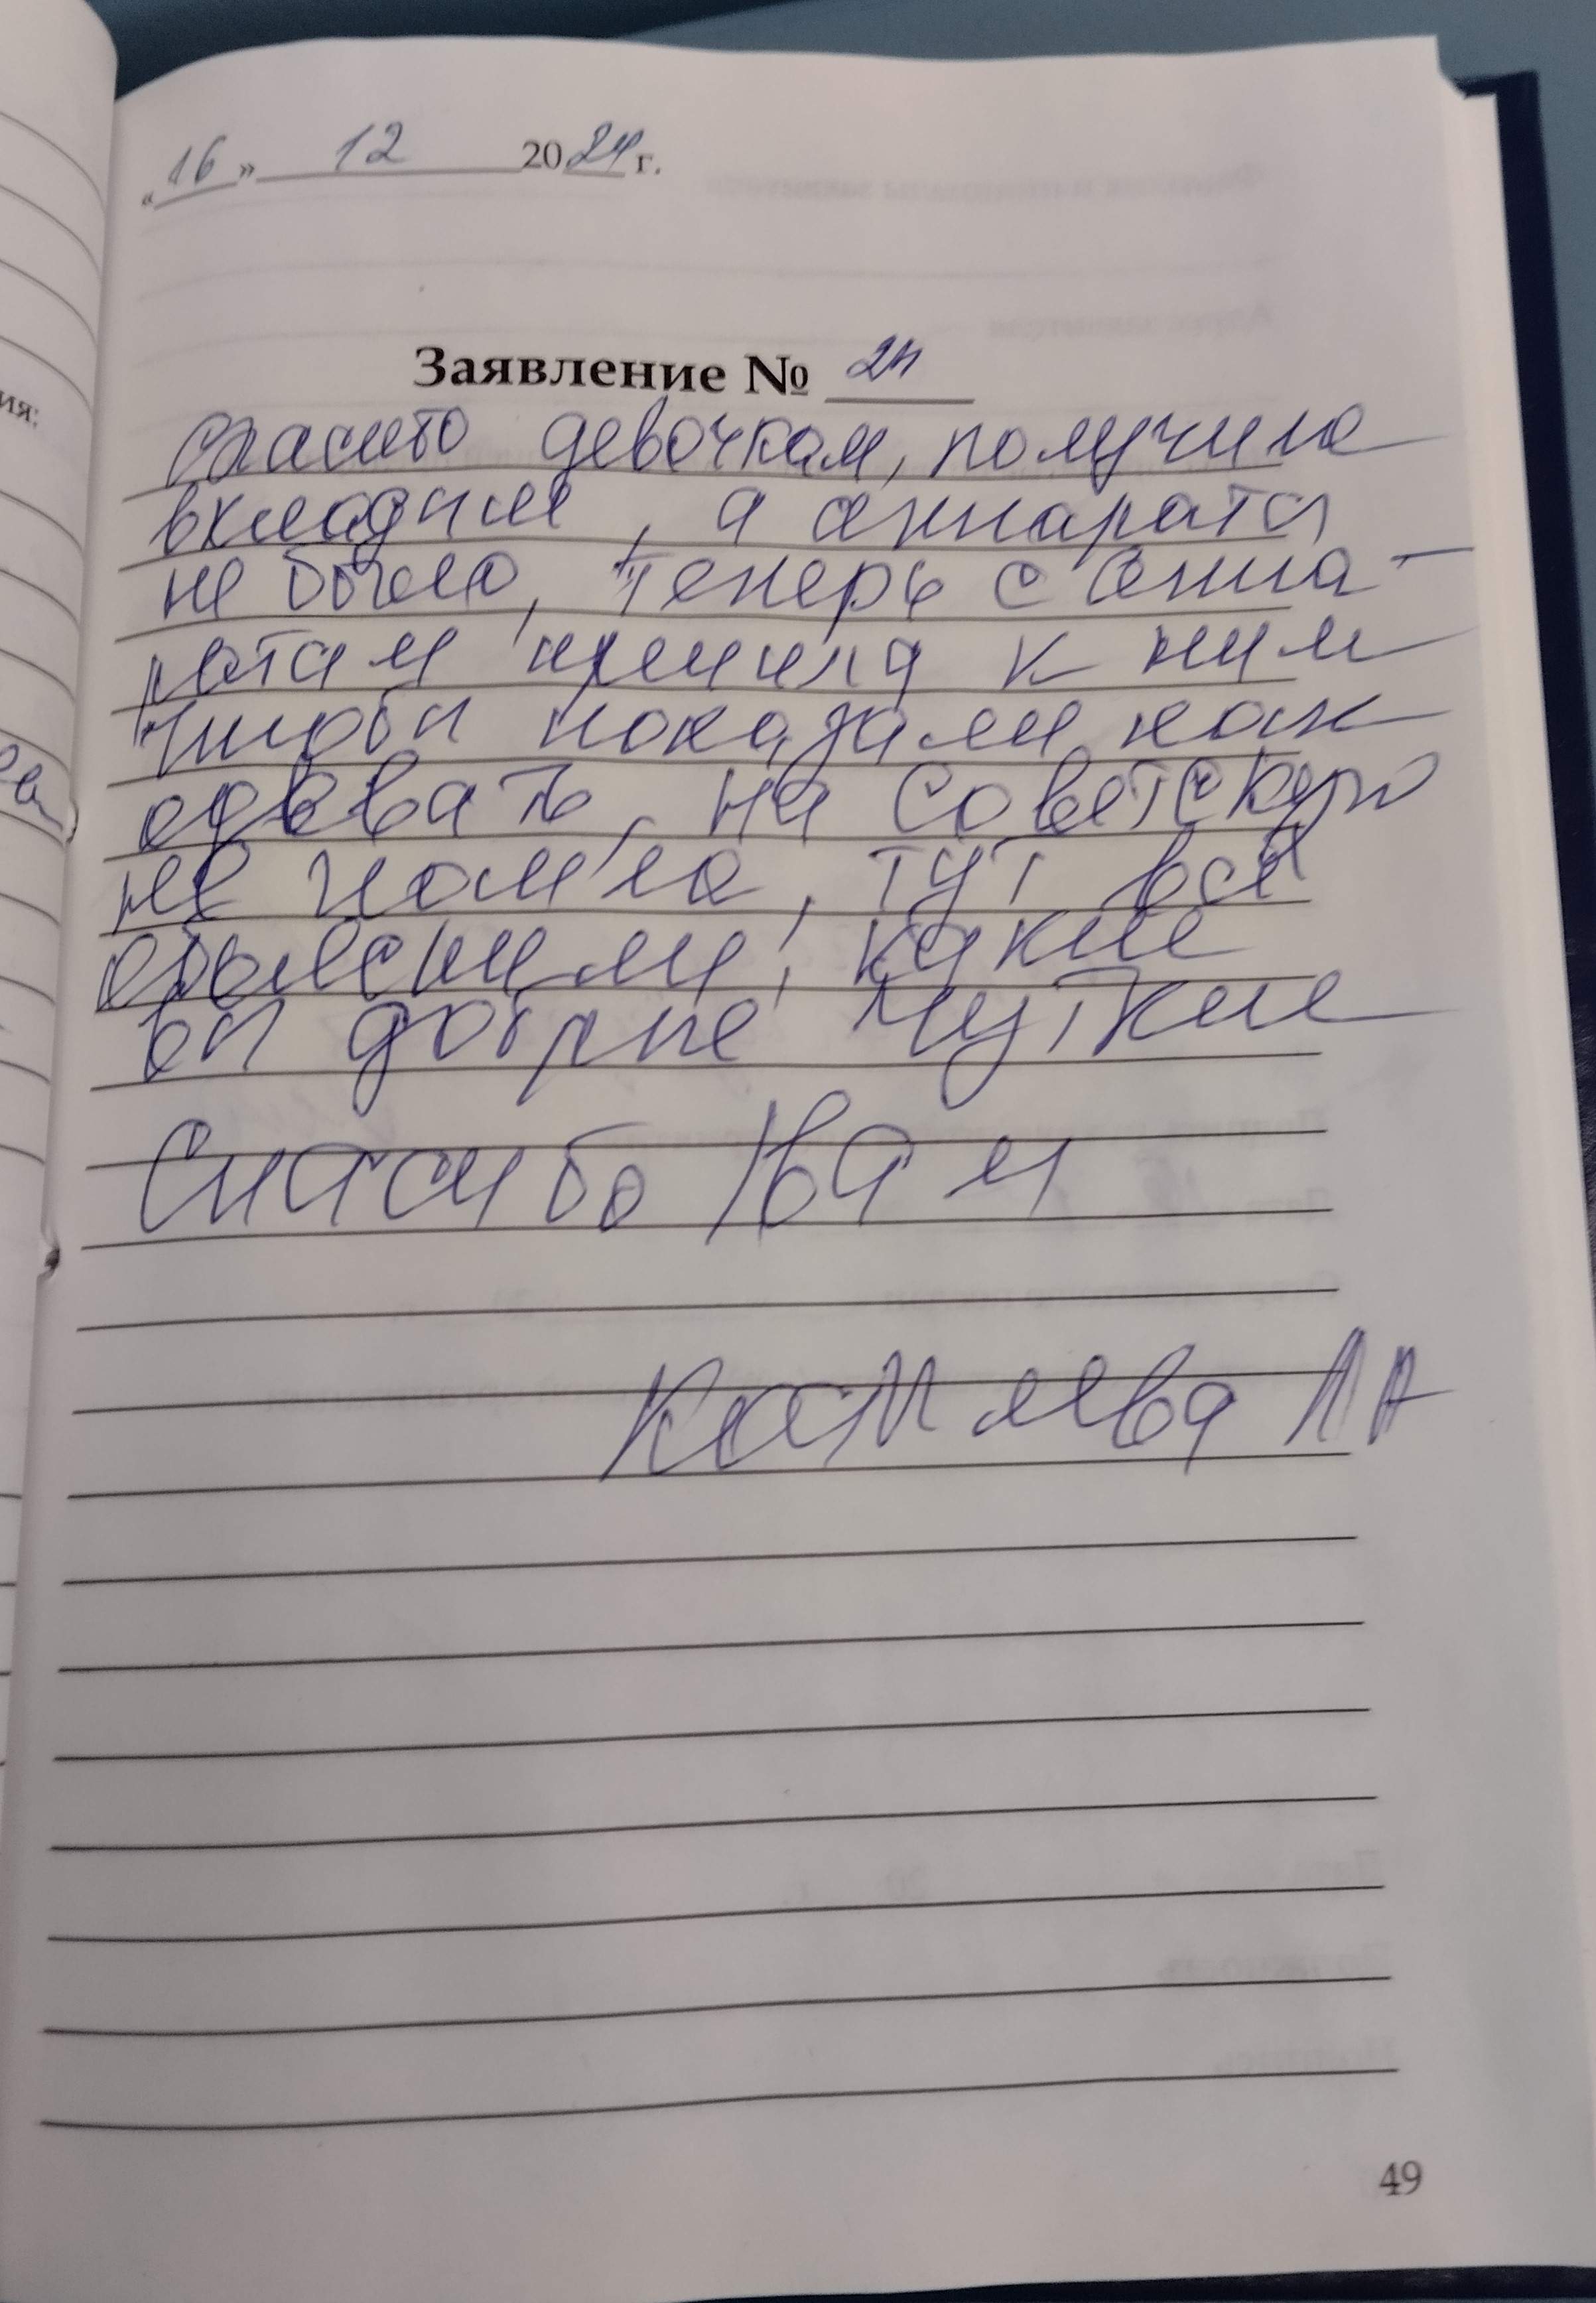 «16» 12 2024 г.
Заявление № 24
Спасибо девочкам, получила
вкладыш, а аппарата
не было, теперь с аппа-
ратам пришла к ним
чтобы показали как
одевать, на Советскую
не пошла, тут всё
объяснили, какие
вы добрые чуткие
Спасибо Вам
ЛА
49